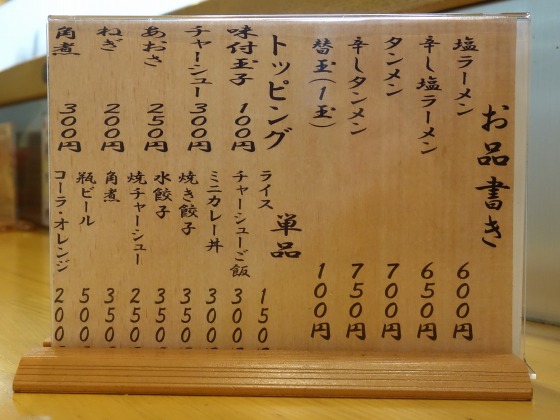 お品書き
塩ラーメン 600円
辛し塩ラーメン 650円
タンメン 700円
辛しタンメン 750円
替玉(1玉) 100円
トッピング
味付玉子 100円
チャーシュー 300円
あおさ 250円
ねぎ 200円
角煮 300円
単品
ライス 150
チャーシューご飯 300
ミニカレー丼 300
焼き餃子 350
水餃子 350
焼チャーシュー 250
角煮 350
瓶ビール 500
コーラ・オレンジ 200